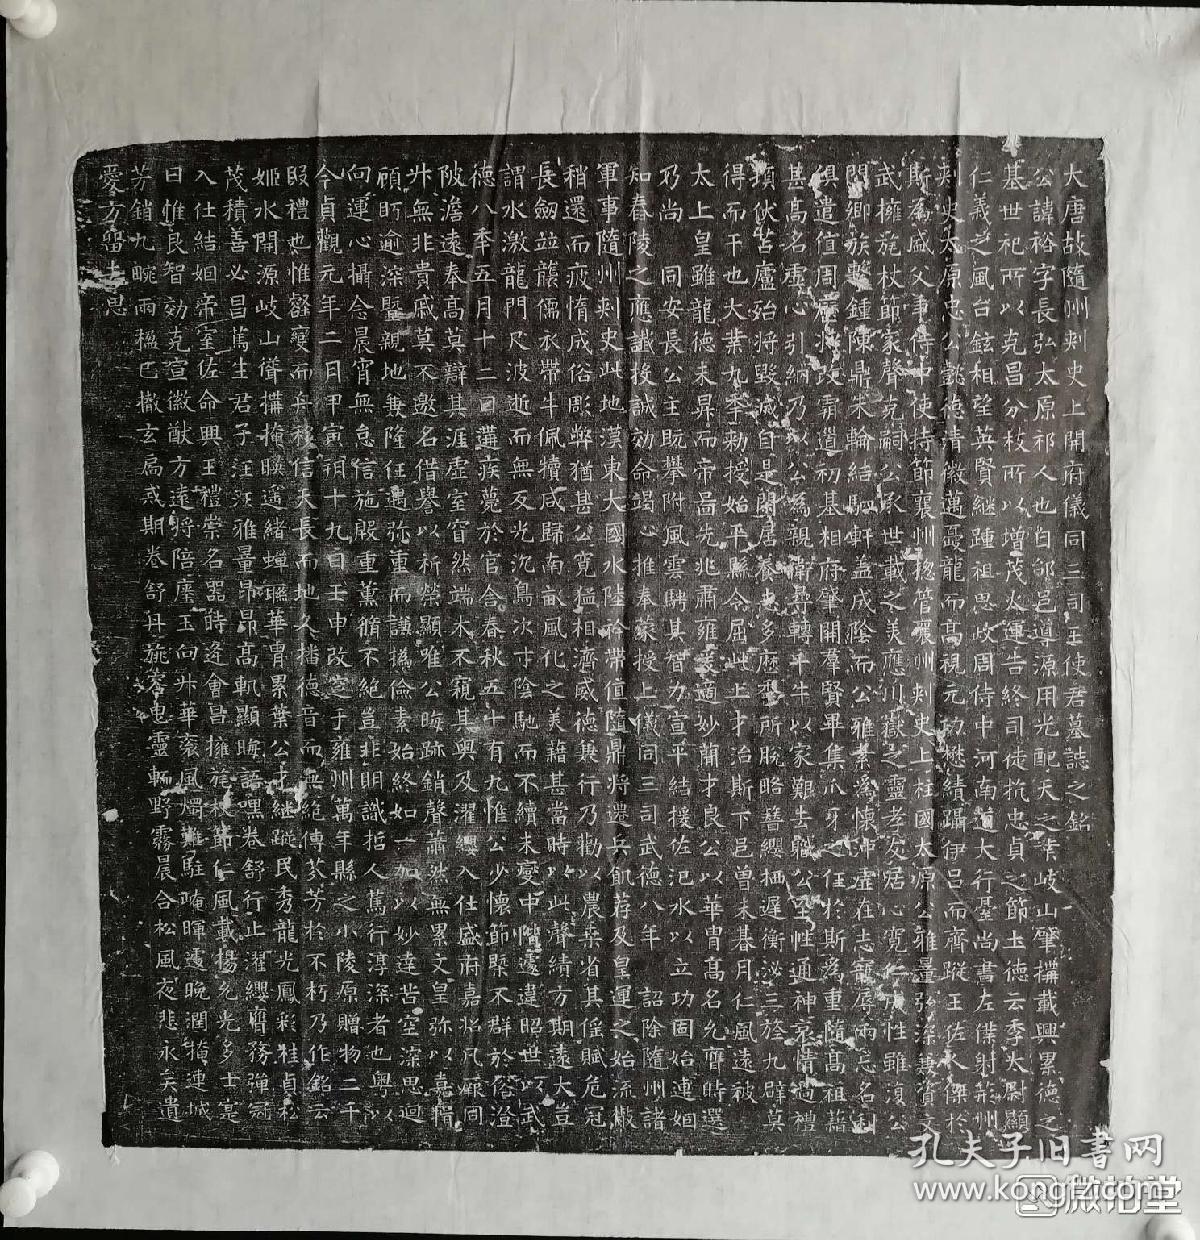 大唐故隨州刺史上開府儀同三司王使君墓誌之銘
公諱裕字長弘太原祁人也自邰邑導源用光配天之業岐山肇構載興累德之
基世祀所以克昌分枝所以增茂火運告終司徒抗忠貞之節土德云季太尉顯
仁義之風台鉉相望英賢継踵祖思政周侍中河南道大行臺尚書左僕射荊州
刺史太原忠公懿德清徽邁夔龍而高視元功懋績躡伊呂而齊蹤王佐人傑於
斯為盛父事侍中使持節襄州揔管襄州刺史上柱國太原公雅量弘深兼資文
武擁旄杖節家聲克嗣公承世載之美應川嶽之靈孝友居心寛仁成性雖復公
門卿族繫鍾陳鼎朱輪結駟軒蓋成陰而公雅素為懷沖虛在志寵辱兩忘名利
俱遣值周啟霸道初基相府肇開羣賢畢集爪牙之任於斯為重隨高祖藉
甚高名虛心引納乃以公為親衛尋轉千牛以家難去職公至性通神哀情過禮
頃伏苫廬殆將毀滅自是閑居養志多歷年所脫略簪纓栖遲衡泌三旌九辟莫
得而干也大業九年勑授始平縣令屈此上才治斯下邑曾未朞月仁風遠被
太上皇雖龍德未昇而帝啚先兆肅雍爰適妙蘭才良公以華冑高名允膺時選
乃尚 同安長公主既攀附風雲騁其智力宣平結援佐汜水以立功固始連姻
知舂陵之應讖投誠効命竭心推奉蒙授上儀同三司武德八年 詔除隨州諸
軍事隨州刺史此地漢東大國水陸衿帶值隨鼎將遷兵飢荐及皇運之始流散
稍還而疲惰成俗彫弊猶甚公寛猛相濟威德兼行乃勸以農桒省其傜賦危冠
長劔並襲儒衣帶牛佩犢咸歸南畝風化之美藉甚當時以此聲績方期遠大豈
謂水激龍門尺波逝而無反光沉鳥次寸陰馳而不續未變中階遽違昭世以武
德八年五月十二日遘疾薨於官舍春秋五十有九惟公少懷節槩不群於俗澄
陂澹遠奉高莫辯其涯虛室窅然端木不窺其奧及濯纓入仕盛府嘉招凡厥同
升無非貴戚莫不邀名借譽以祈榮顯唯公晦跡銷聲蕭然無累文皇弥以嘉揖
顧眄逾深暨親地兼隆任遇弥重而謙撝儉素始終如一加以妙達苦空深思迴
向運心攝念晨宵無怠信施殷重薰脩不絕豈非明識哲人篤行淳深者也粵以
今貞觀元年二月甲寅朔十九日壬申改窆于雍州萬年縣之小陵原贈物二千
段禮也惟壑變而舟移信天長而地久播德音而無絕傳芬芳於不朽乃作銘云
姬水開源岐山聳構掩曖遙緒蟬聯華冑累葉公才継蹤民秀龍光鳳彩桂貞松
茂積善必昌篤生君子汪汪雅量昂昂高軌顯晦語嘿卷舒行止濯纓膺務彈冠
入仕結姻帝室佐命興王禮崇名器時逢會昌擁旄杖節仁風載揚允光多士寔
曰惟良智効克宣徽猷方遠將陪廩玉向升華袞風燭難駐崦暉遽晚潤犢連城
芳銷九畹雨楹巴撤玄扃戒期卷舒丹旐容曳靈輀野霧晨合松風夜悲永矣遺
愛方留士思
孔夫子旧書网
www.kongfz.com
微拍堂